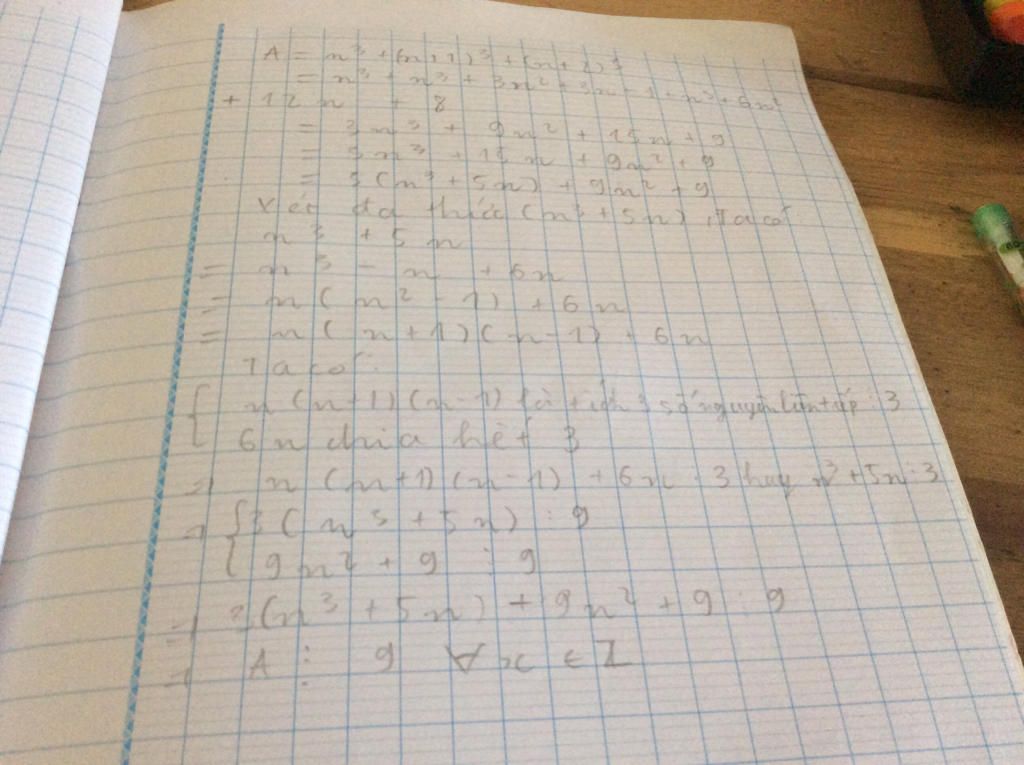 A = n³ + (n+1)³ + (n+2)³
= n³ + n³ + 3n² + 3n + 1 + n³ + 6n²
+ 12n + 8
= 3n³ + 9n² + 15n + 9
= 3n³ + 15n + 9n² + 9
= 3(n³ + 5n) + 9n² + 9
Xét đa thức (n³ + 5n), Ta có:
n³ + 5n
= n³ - n + 6n
= n(n² - 1) + 6n
= n(n+1)(n-1) + 6n
Ta có:
{ n(n+1)(n-1) là tích 3 số nguyên liên tiếp ⋮ 3
6n chia hết 3
⇒ n(n+1)(n-1) + 6n ⋮ 3 hay n³ + 5n ⋮ 3
⇒ { 3(n³ + 5n) ⋮ 9
9n² + 9 ⋮ 9
⇒ 3(n³ + 5n) + 9n² + 9 ⋮ 9
⇒ A ⋮ 9 ∀ x ∈ Z